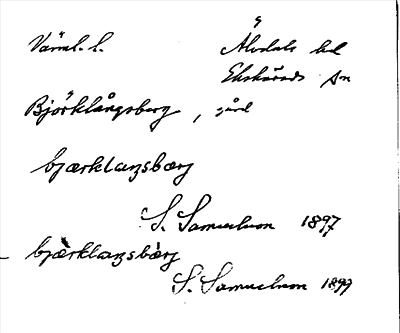 Värml. l. Älvdals hd
Ekshärads sn
Björklångsberg, gård
bjærklaŋsbærj
S. Samuelsson 1897
bjærklaŋsbærj
S. Samuelsson 1897